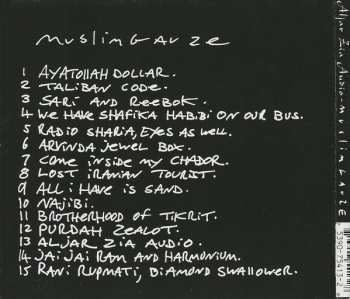 muslimgauze
1 AYATOLLAH DOLLAR.
2 TALIBAN CODE.
3 SARI AND REEBOK.
4 WE HAVE SHAFIKA HABIBI ON OUR BUS.
5 RADIO SHARIA, EYES AS WELL.
6 ARVINDA JEWEL BOX.
7 COME INSIDE MY CHADOR.
8 LOST IRANIAN TOURIST.
9 ALL I HAVE IS SAND.
10 NAJIBI.
11 BROTHERHOOD OF TIKRIT.
12 PURDAH ZEALOT.
13 ALJAR ZIA AUDIO.
14 JAI JAI RAM AND HARMONIUM.
15 RANI RUPMATI, DIAMOND SWALLOWER.
Aljar Zia Audio-muslimgauze